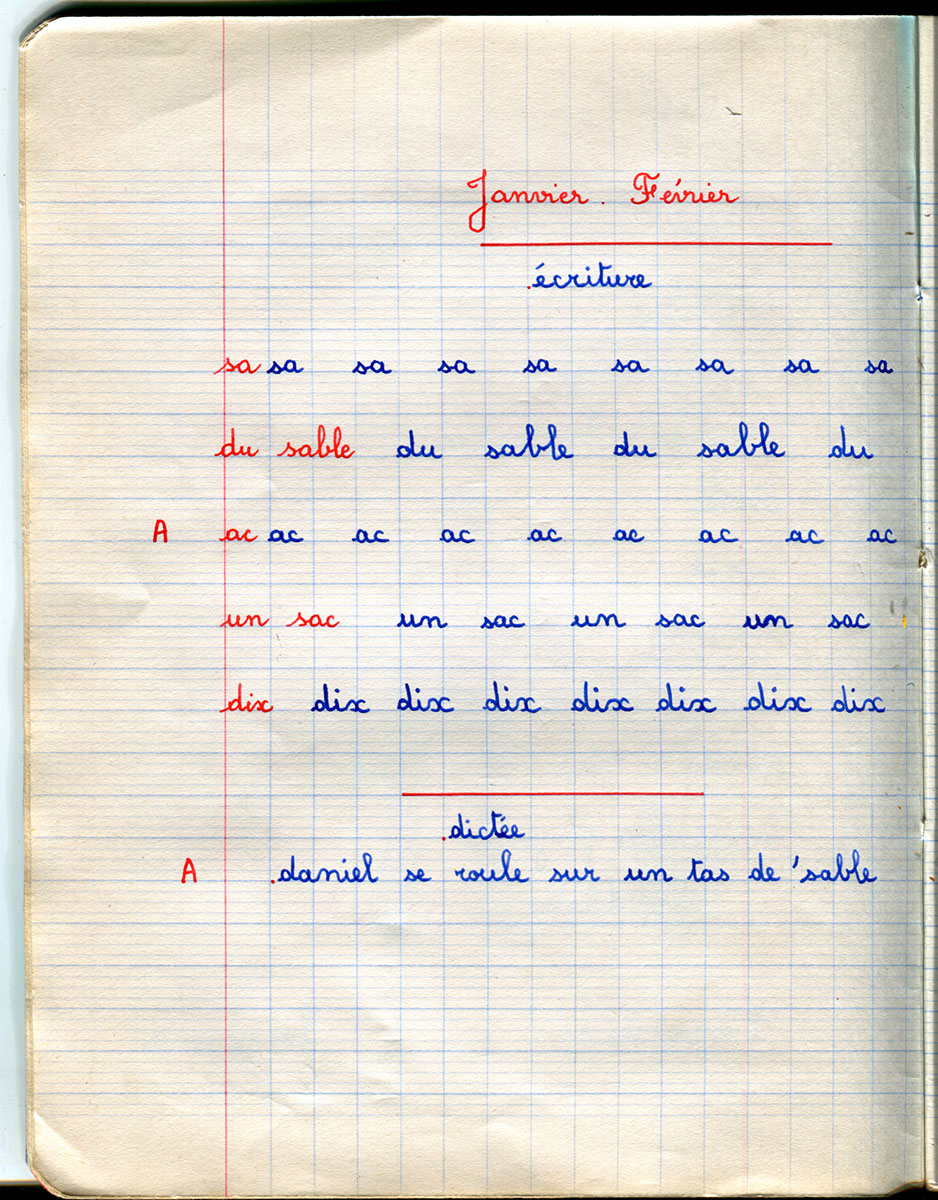 Janvier. Février
.écriture
sa sa sa sa sa sa sa sa sa
du sable du sable du sable du
A ac ac ac ac ac ac ac ac ac
un sac un sac un sac un sac
dix dix dix dix dix dix dix dix
.dictée
A .daniel se roule sur un tas de 'sable